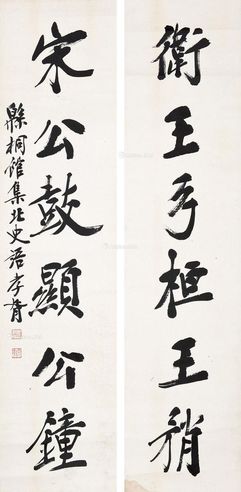 衛王手桓王稍
宋公鼓顯公鐘
縣桐館集北史語孝胥